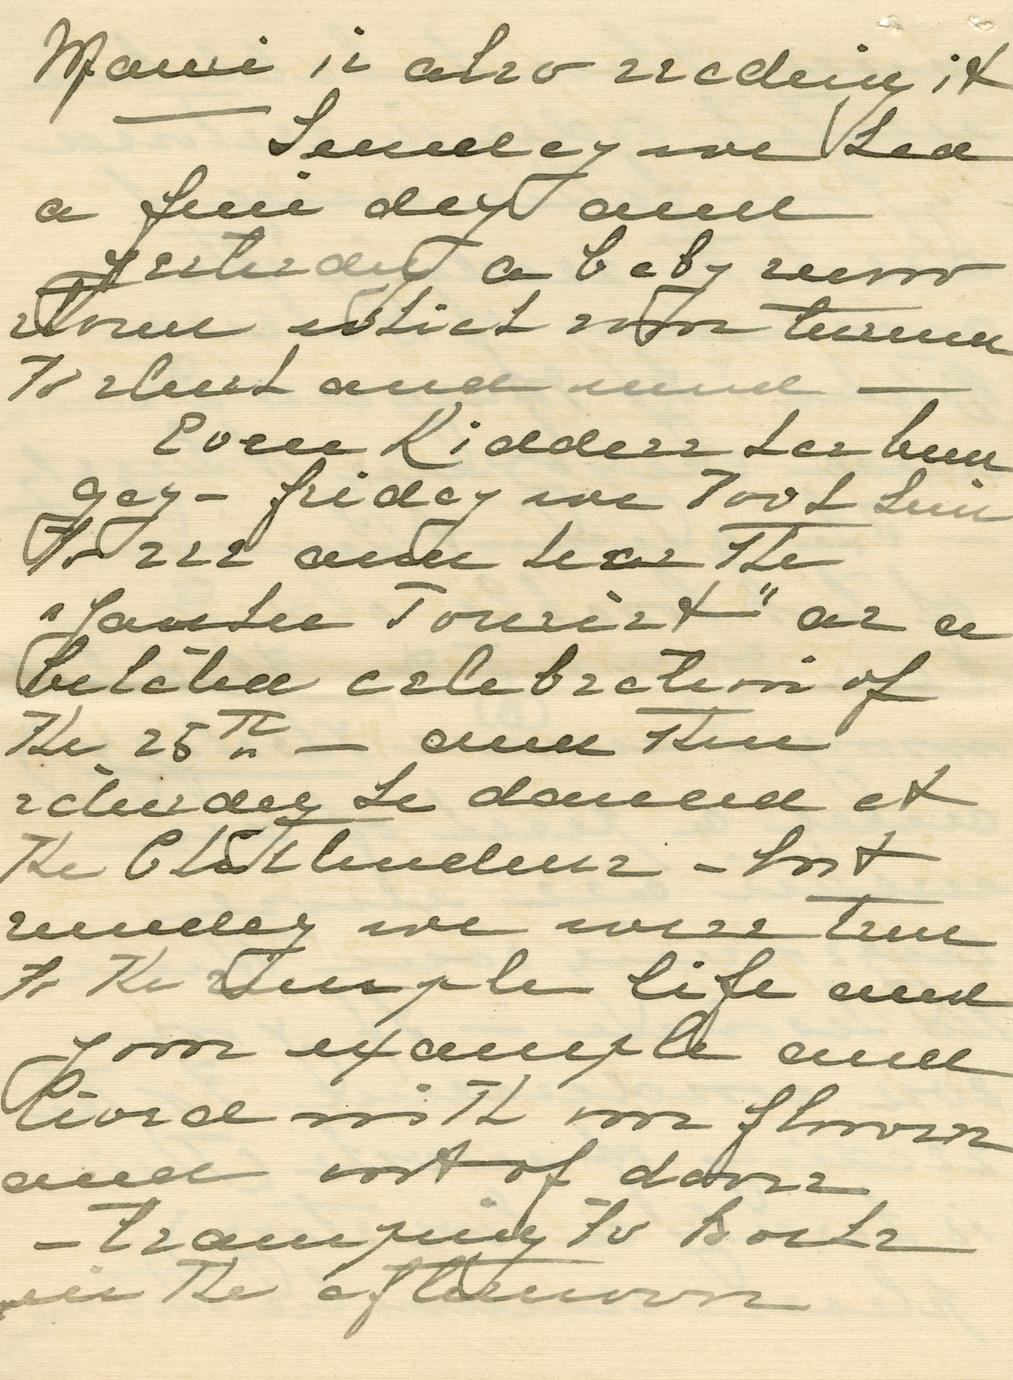 Mami is also reading it
Sunday we had
a fine day and
yesterday a baby snow
storm which soon turned
to slush and mud —
Even Kidders has been
gay - friday we took him
to see and hear the
"Yankee Tourist" as a
belated celebration of
the 25th — and then
saturday he danced at
the - but
sunday we were true
to the simple life and
your example and
lived with our flowers
and out of doors
- tramping to Books
in the afternoon